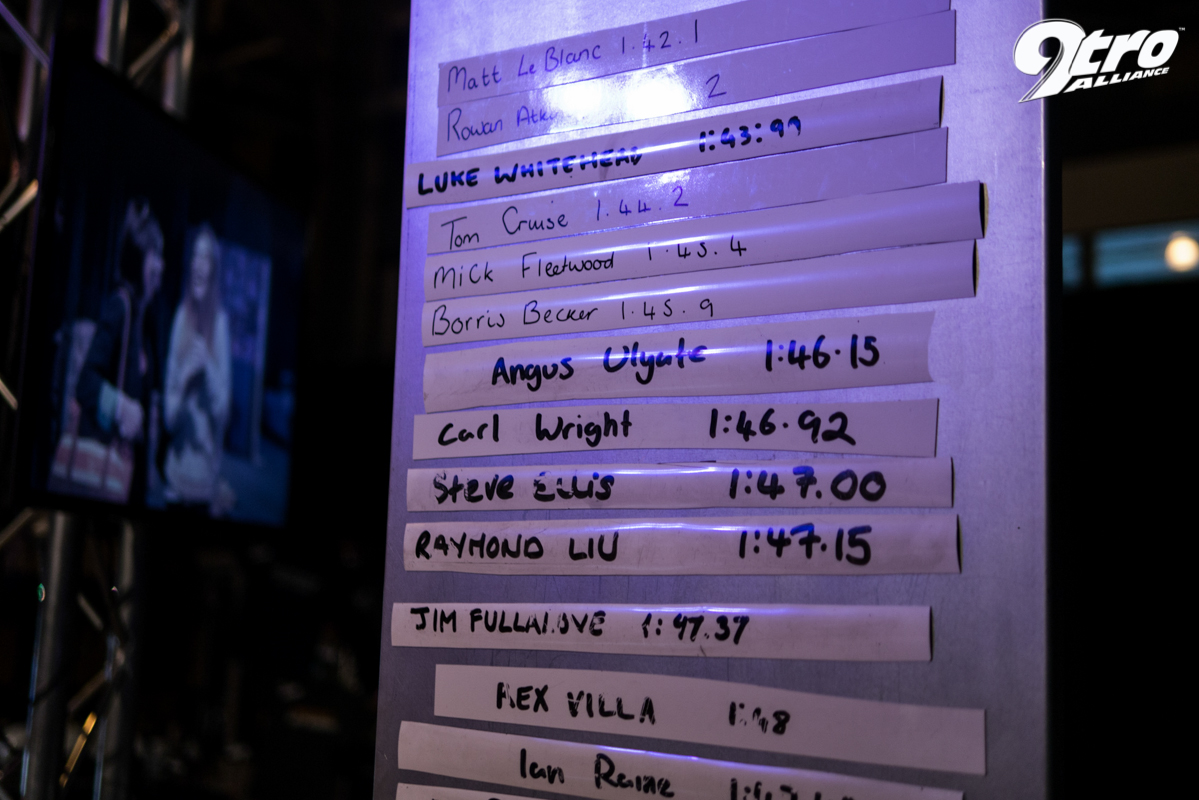 9tro ALLIANCE™
Matt LeBlanc 1.42.1
Rowan 2
LUKE WHITEHEAD 1:43:99
Tom Cruise 1.44.2
Mick Fleetwood 1.45.4
Borris Becker 1.45.9
Angus Ulyate 1:46.15
Carl Wright 1:46.92
Steve Ellis 1:47.00
RAYMOND LIU 1:47.15
JIM FULLALOVE 1:47.37
VILLA 1:48
Ian